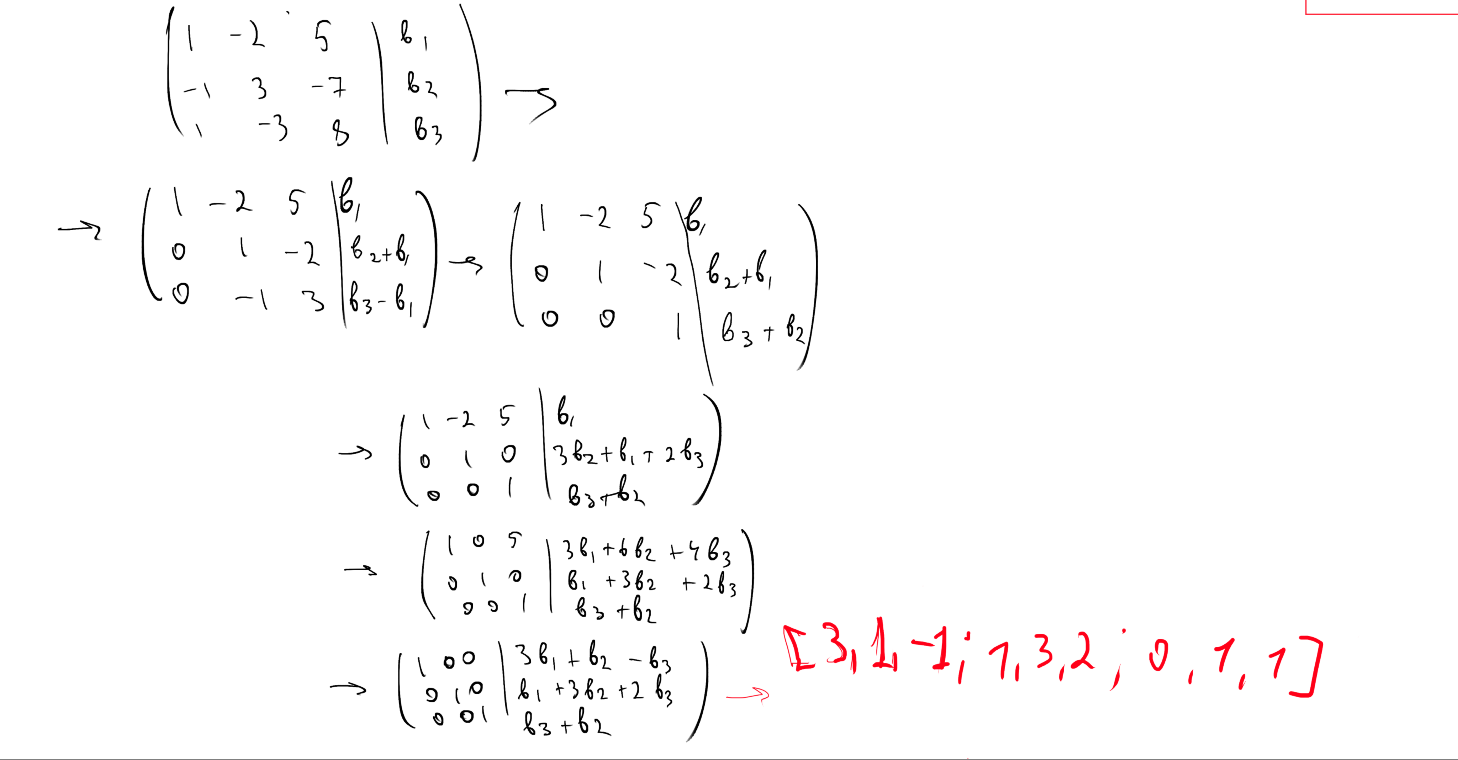 1 -2 5 | b1
-1 3 -7 | b2 →
1 -3 8 | b3
→ 1 -2 5 | b1
0 1 -2 | b2+b1 →
0 -1 3 | b3-b1
1 -2 5 | b1
0 1 -2 | b2+b1
0 0 1 | b3+b2
→ 1 -2 5 | b1
0 1 0 | 3b2+b1+2b3
0 0 1 | b3+b2
→ 1 0 5 | 3b1+6b2+4b3
0 1 0 | b1+3b2+2b3
0 0 1 | b3+b2
→ 1 0 0 | 3b1+b2-b3
0 1 0 | b1+3b2+2b3
0 0 1 | b3+b2
→ [3,1,-1; 1,3,2; 0,1,1]